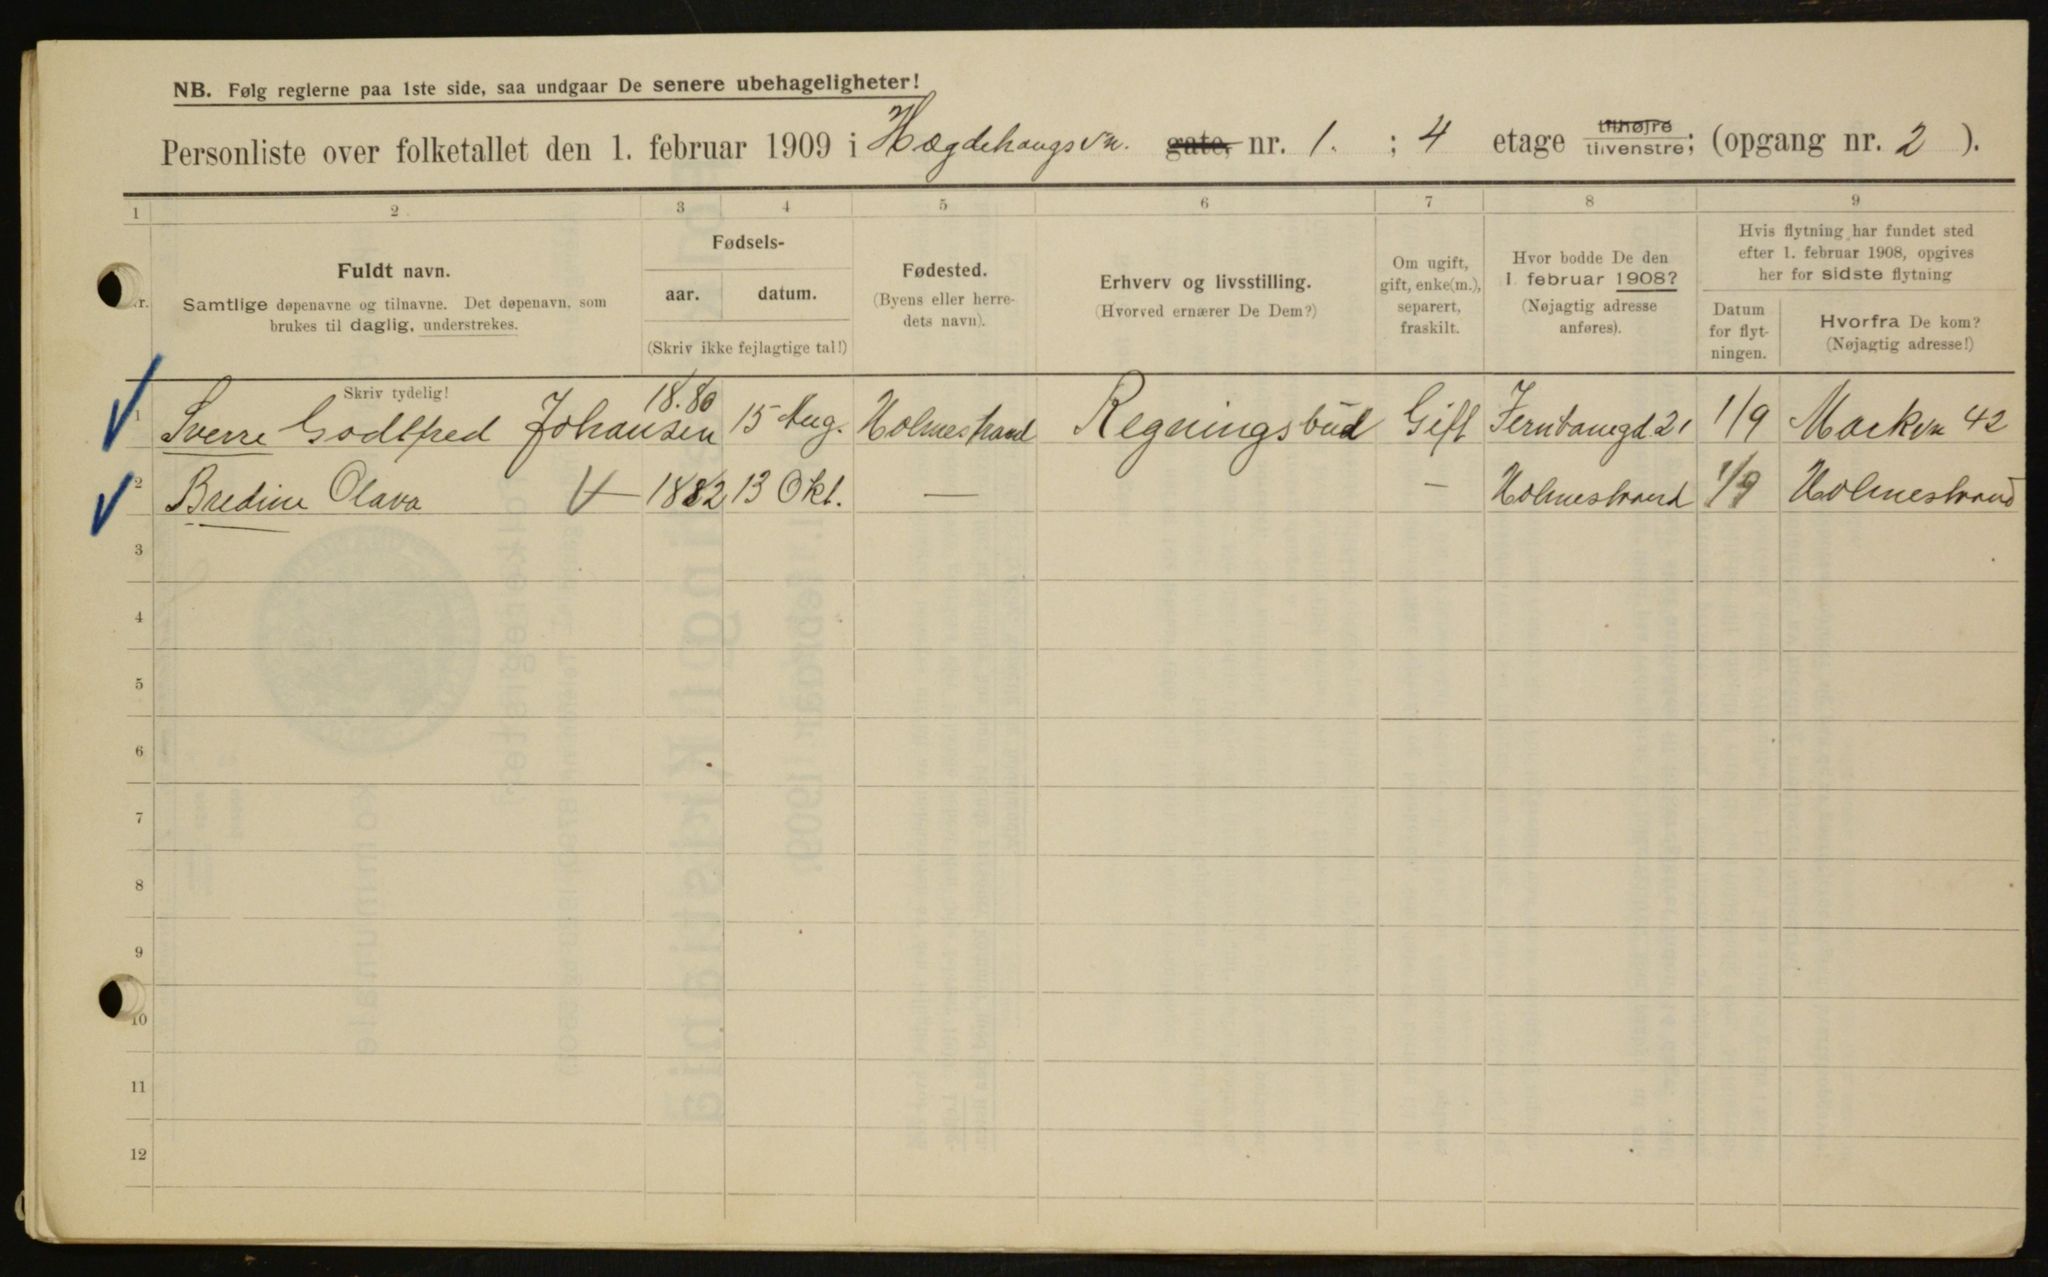 NB. Følg reglerne paa 1ste side, saa undgaar De senere ubehageligheter!
Personliste over folketallet den 1. februar 1909 i Hægdehougsvn. gate, nr. 1. ; 4 etage tilhøjre tilvenstre; (opgang nr. 2 ).
1 2 3 4 5 6 7 8 9
Nr.
Fuldt navn.
Samtlige døpenavne og tilnavne. Det døpenavn, som
brukes til daglig, understrekes.
Fødsels-
aar. datum.
(Skriv ikke fejlagtige tal!)
Fødested.
(Byens eller herre-
dets navn).
Erhverv og livsstilling.
(Hvorved ernærer De Dem?)
Om ugift,
gift, enke(m.),
separert,
fraskilt.
Hvor bodde De den
1 februar 1908?
(Nøjagtig adresse
anføres).
Hvis flytning har fundet sted
efter 1. februar 1908, opgives
her for sidste flytning
Datum
for flyt-
ningen.
Hvorfra De kom?
(Nøjagtig adresse!)
Skriv tydelig!
1 Sverre Godtfred Johansen 18.80 15 Aug. Holmestrand Regningsbud Gift Jernbanegd 21 1/9 Markvn 42
2 Bredine Olava 1882 13 Okt. — — Holmestrand 1/9 Holmestrand
3
4
5
6
7
8
9
10
11
12